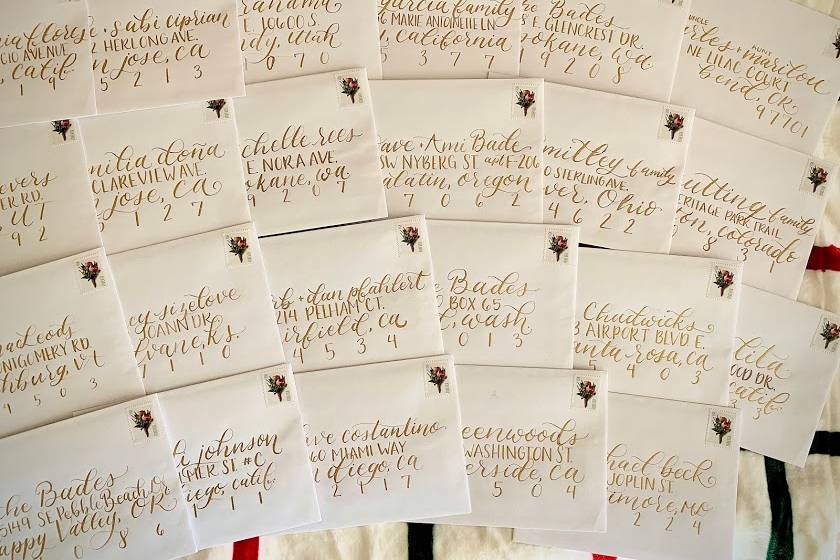 CIO AVENUE
, Calif.
1 4
+ sabi ciprian
HERLONG AVE.
n jose, ca
5 2 1 3
E. 10600 S.
ndy, Utah
0 7 0
garcia family
6 MARIE ANTOINETTE LN.
, California
5 3 7 7
the Bades
E. GLENCREST DR.
okane, wa
9 2 0 8
UNCLE
AUNT
rles + marilou
NE LILAC COURT
bend, OR
97701
evers
ER RD.
UT
9 2
milia doña
CLAREVIEW AVE.
jose, CA
5 1 2 7
chelle rees
E. NORA AVE.
okane, wa
9 2 0 7
ave + Ami Bade
SW NYBERG ST apt F-206
alatin, oregon
7 0 6 2
mitley family
0 STERLING AVE.
ver, Ohio
4 6 2 2
utting family
ERITAGE PARK TRAIL
on, colorado
8 3 4
acLeods
NTGOMERY RD.
hburg, VT
4 5 0 3
cy sizelove
JOANN DR.
vane, ks.
1 1 0
rb + dan pfahlert
214 PELHAM CT.
irfield, ca
4 5 3 4
e Bades
BOX 65
, wash
0 1 3
Chadwicks
3 AIRPORT BLVD E.
anta rosa, ca
5 4 0 3
lita
UD DR.
calif.
3
the Bades
5149 SE Pebble Beach Dr
appy Valley, OR
0 8 6
i johnson
MER ST. #C
iego, calif.
1 1 1
ave costantino
60 MIAMI WAY
n diego, ca
2 1 1 7
eenwoods
WASHINGTON ST.
erside, CA
5 0 4
hael beck
JOPLIN ST.
imore, MD
2 2 4